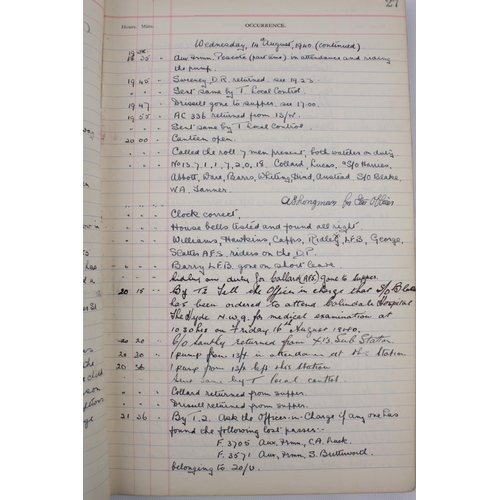 27
Hours. Mins. OCCURRENCE.
Wednesday, 14th August, 1940. (continued)
Aux. Fmn. Pescote (part time) in attendance and riding
the pump.
19 45 Sweeney D.R. returned. see 19.23.
" " " Sent same by T Local Control.
19 47 " Driscoll gone to supper. see 17.00.
19 55 " AC 336 returned from 13/U.
" " " Sent same by T Local Control.
20 00 " Canteen open.
" " " Called the roll & men present, both watches on duty
" " " No 13. 7. 1, 1, 7, 2, 0, 18. Collard, Lucas, S/O Harries,
Abbott, Ward, Barrs, Whiting, Hurd, Austead. S/O Blake.
W.A. Tanner.
A. Shongman for Stn Officer
" " " Clock correct,
" " " House bells tested and found all right
" " " Williams, Hawkins, Capps, Ridley L.F.B, George,
Slatter AFS. riders on the D.P.
" " " Barry L.F.B. gone on short leave
on duty for Collard (AFS) gone to supper.
20 15 " By T2 Tell the Officer in charge that S/O Blake
has been ordered to attend Colindale Hospital
The Hyde N.W.9. for medical examination at
10.30 hrs on Friday 16th August 1940.
20 20 returned from X13 Sub Station.
20 30 " 1 Pump from 13/X in attendance at this Station
20 36 1 Pump from 13/X left this Station
" " Sent same by T Local Control.
" " " Collard returned from supper.
" " " Driscoll returned from supper.
21 26 " By T.2. Ask the Officer-in-Charge if any one has
found the following lost passes:-
F. 3705 Aux. Fmn. C.A. Leek.
F. 3571 Aux, Fmn. S. Butterworth
belonging to 20/U.